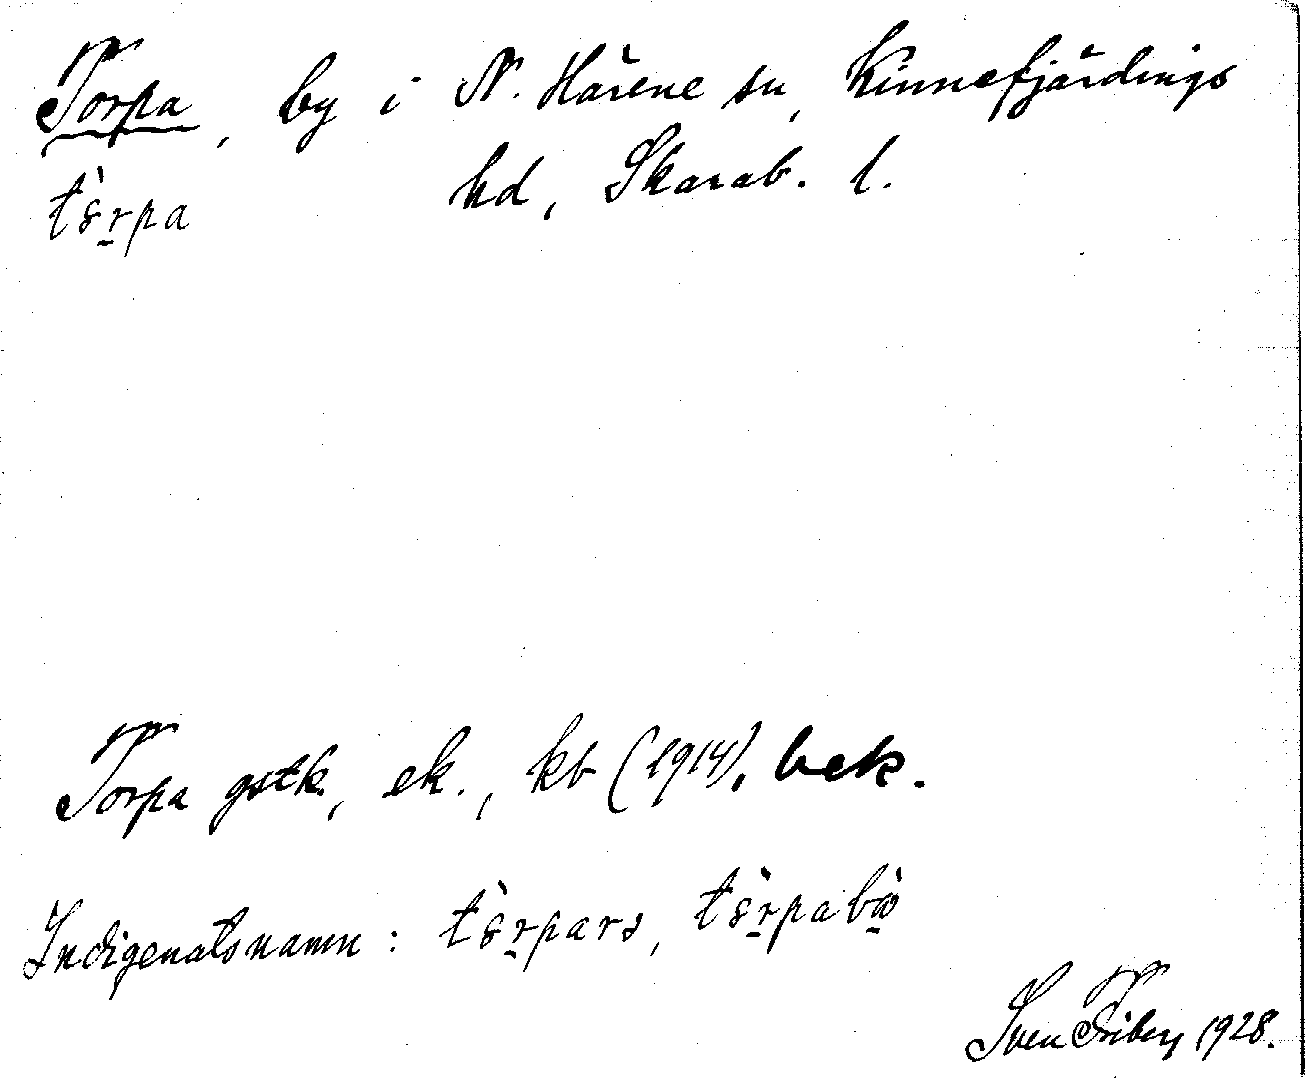 Torpa, by i N. Härene sn, Kinnefjärdings
hd, Skarab. l.
tɞ̀r̠pa
Torpa gstk., ek., kb (1914), bek.
Indigenatsnamn: tɞ̀r̠parɘ, tɞ̀r̠pabò̠
Sven Friberg 1928.